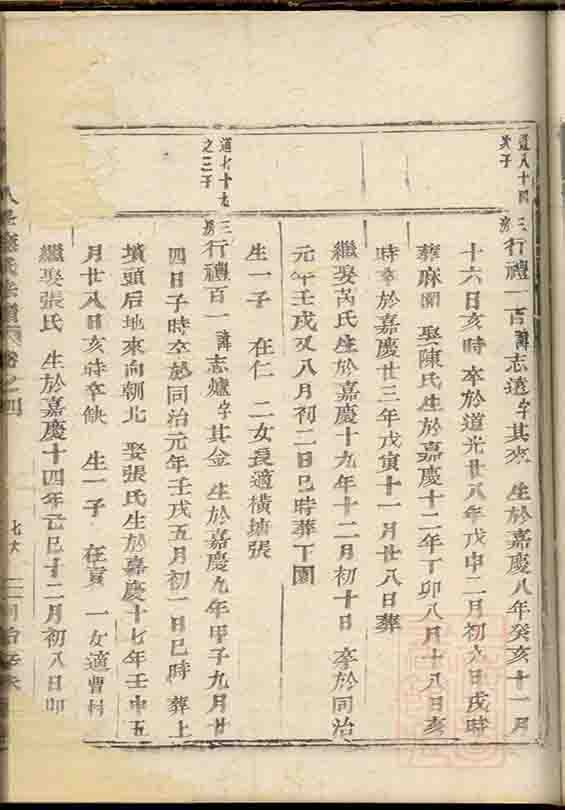 道八十四
次子
三房
行禮一百諱志遠字其來 生於嘉慶八年癸亥十一月
十六日亥時 卒於道光廿八年戊申二月初六日戌時
葬麻園 娶陳氏生於嘉慶十二年丁卯八月十八日亥
時卒於嘉慶廿三年戊寅十一月廿八日葬
繼娶芮氏生於嘉慶十九年十二月初十日 卒於同治
元年壬戌又八月初二日巳時葬丁園
生一子 在仁 二女長適橫塘張
道七十九
之三子
三房
行禮百一諱志爐字其金 生於嘉慶九年甲子九月廿
四日子時卒於同治元年壬戌五月初一日巳時 葬上
墳頭后地來向朝北 娶張氏生於嘉慶十七年壬申五
月廿八日亥時卒缺 生一子 在寅 一女適曹村
繼娶張氏 生於嘉慶十四年己巳十二月初八日卯
卷之四
七六
同治辛未